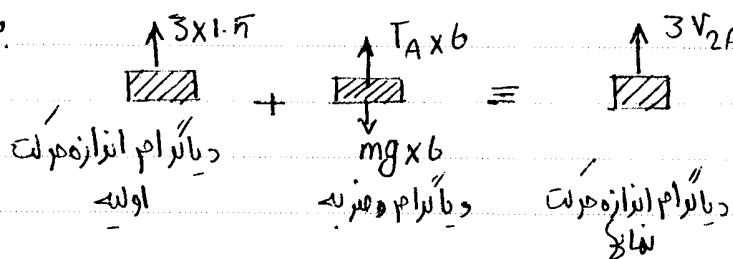 3×1.5
T_A × 6
3 V_2A
+
≡
mg×6
دیاگرام اندازه حرکت
اولیه
دیاگرام ضربه
دیاگرام اندازه حرکت
نهائی